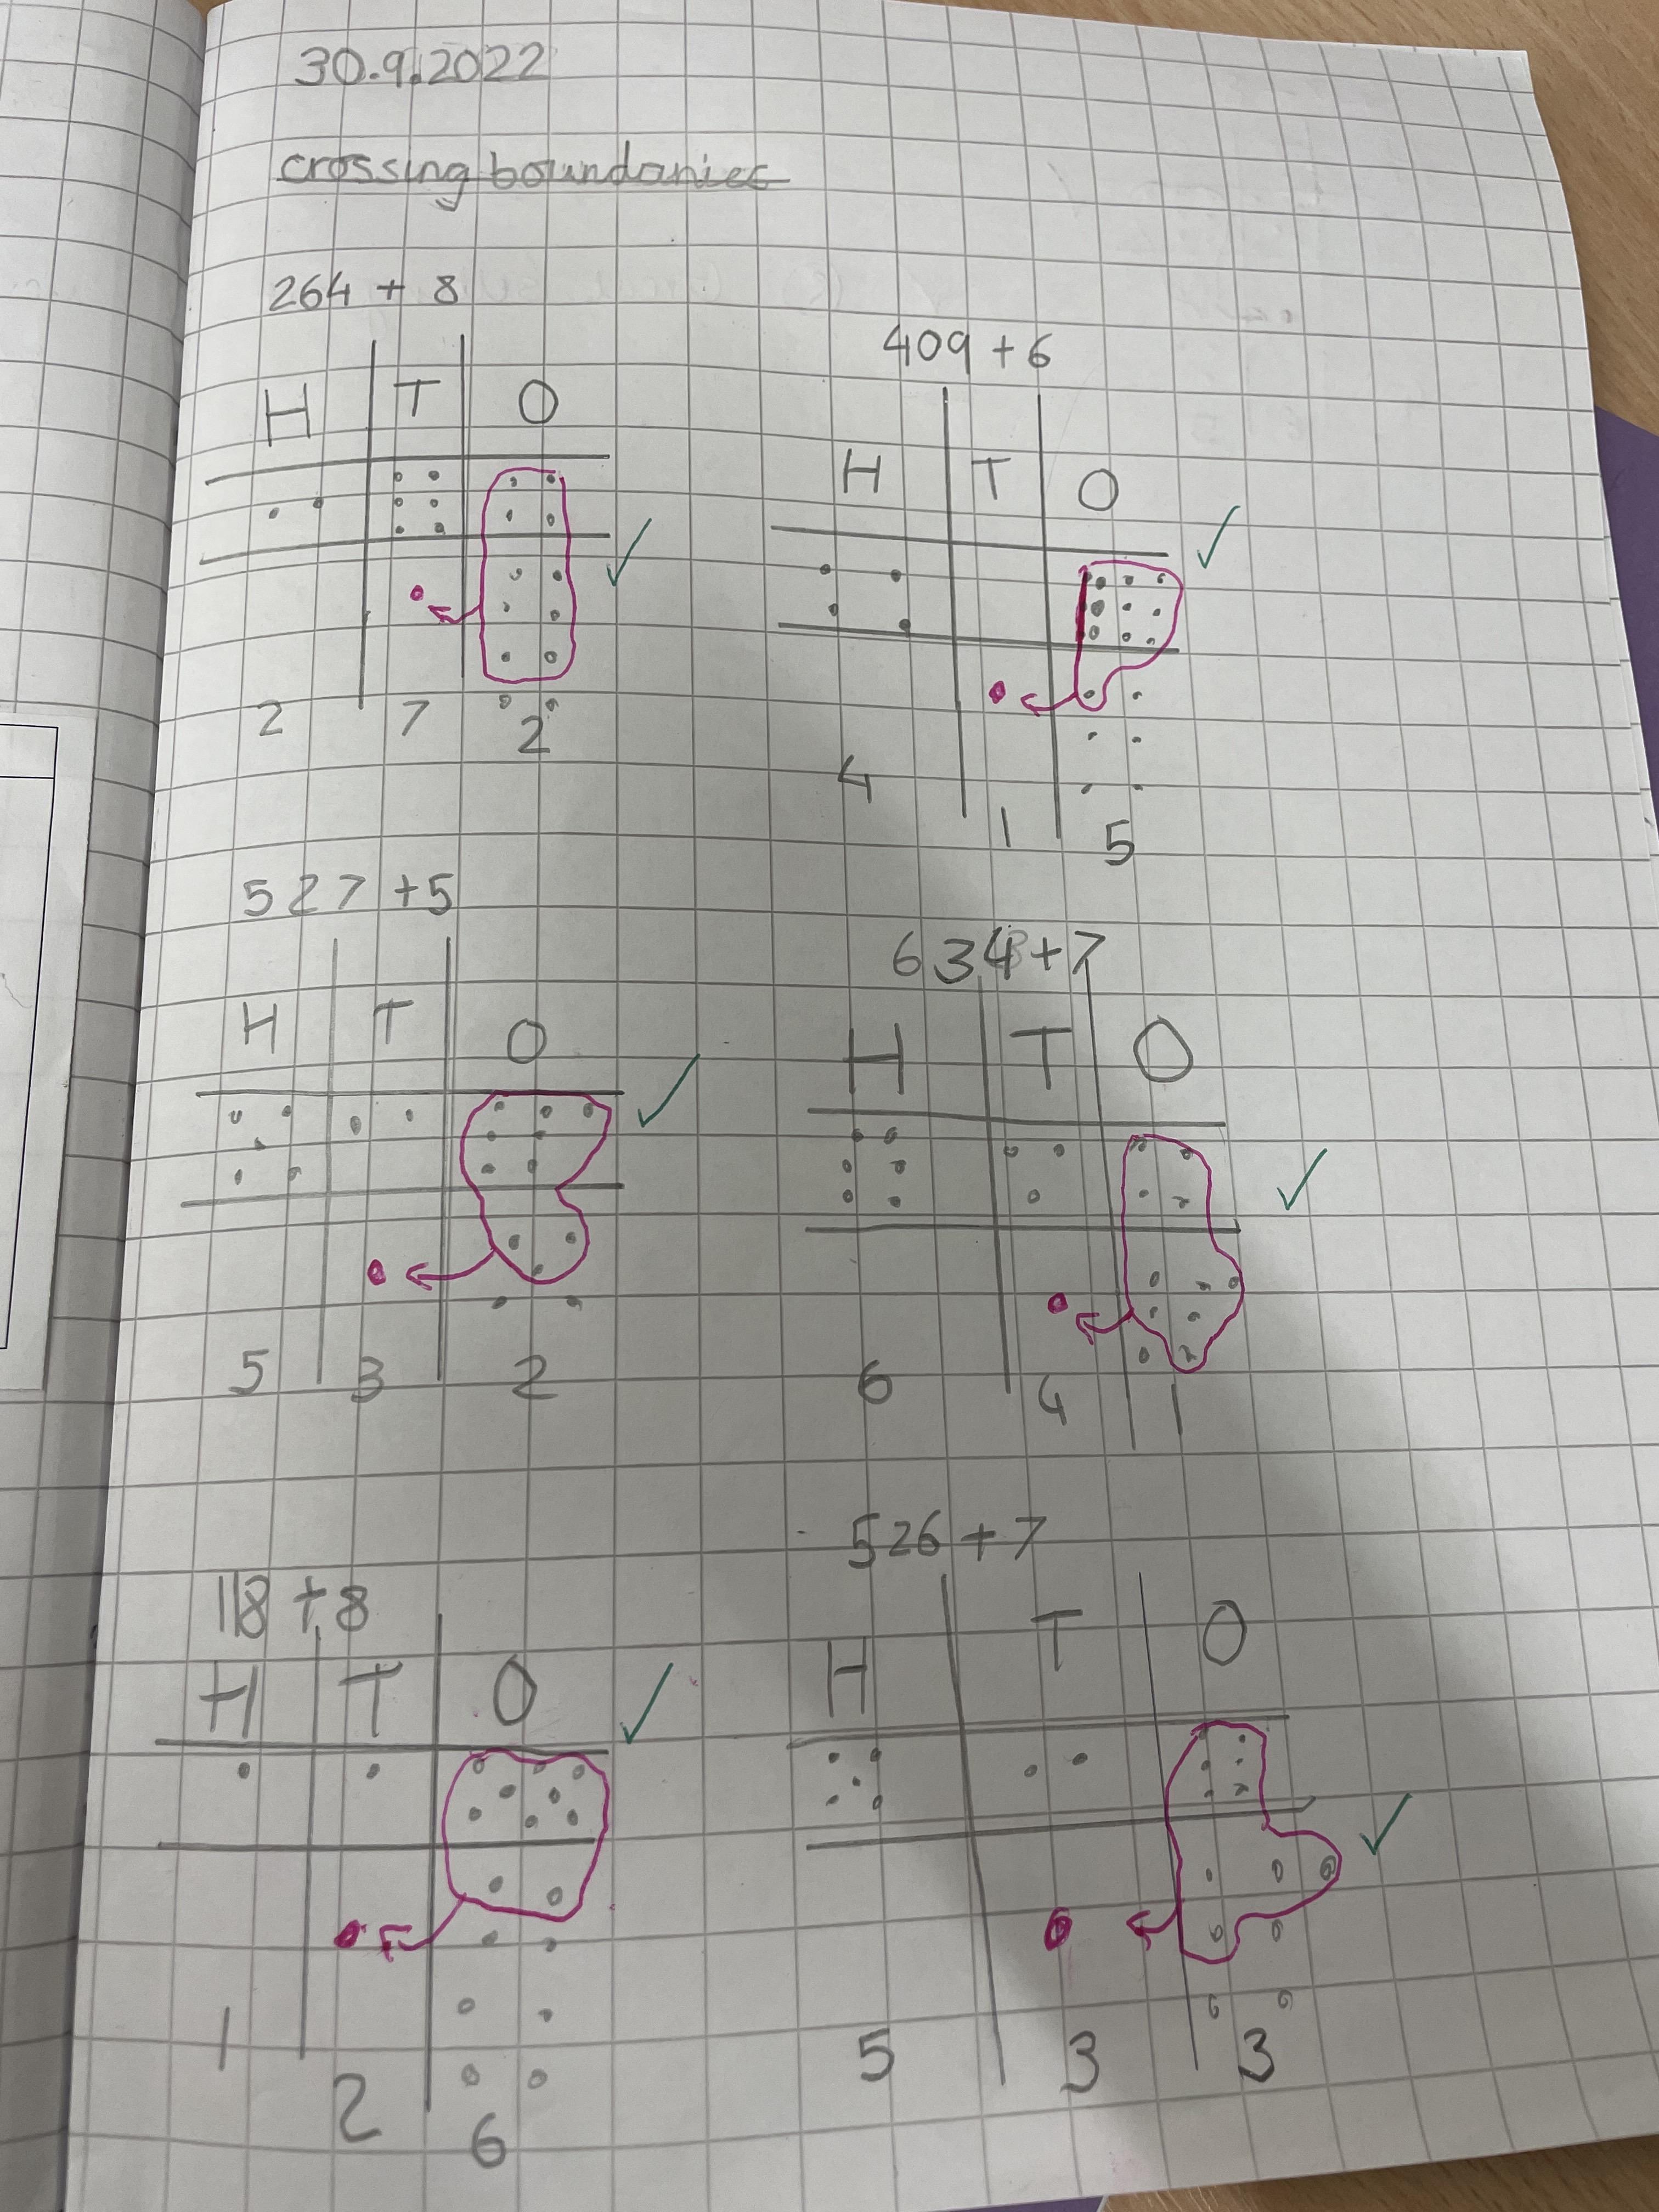 30.9.2022
crossing boundaries
264 + 8
H T O
2 7 2
409 + 6
H T O
4 1 5
527 + 5
H T O
5 3 2
634 + 7
H T O
6 4 1
118 + 8
H T O
1 2 6
526 + 7
H T O
5 3 3